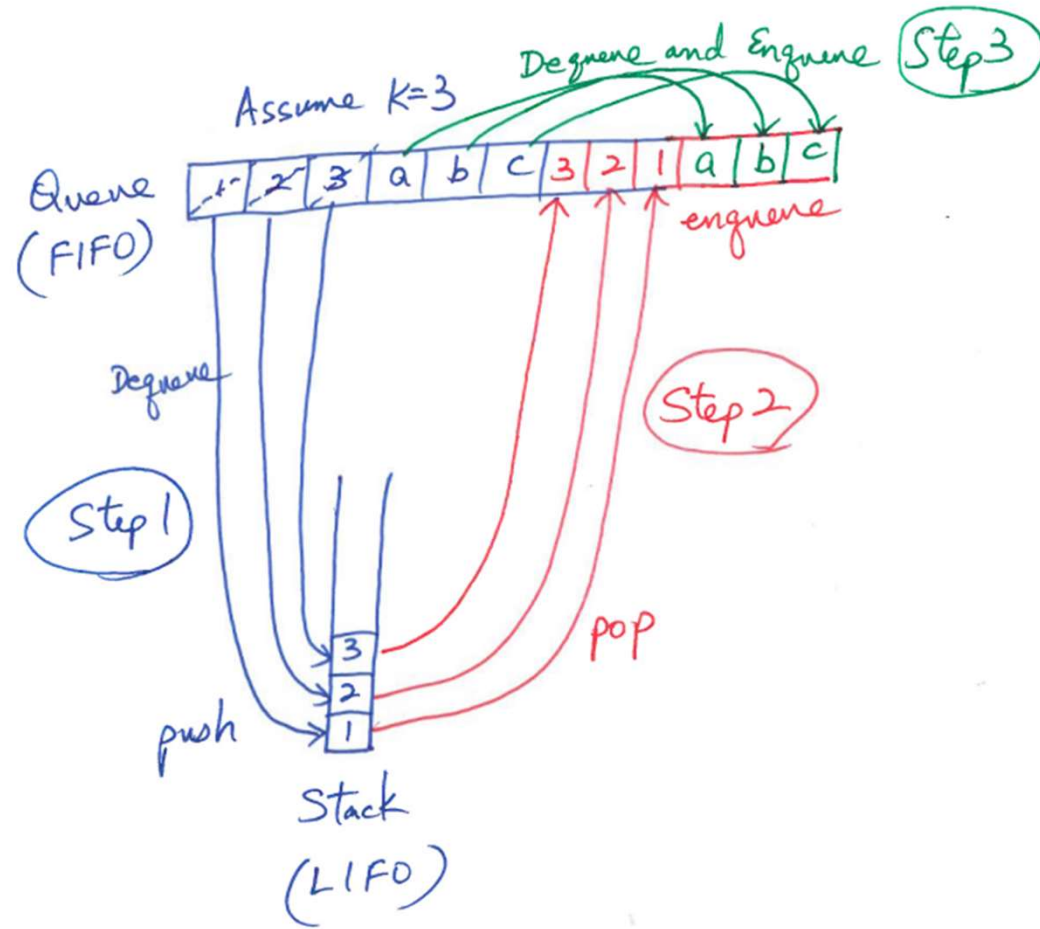 Dequeue and Enqueue
Step 3
Assume K=3
Queue
(FIFO)
1 2 3 a b c 3 2 1 a b c
enqueue
Dequeue
Step 2
Step 1
pop
3
2
1
push
Stack
(LIFO)